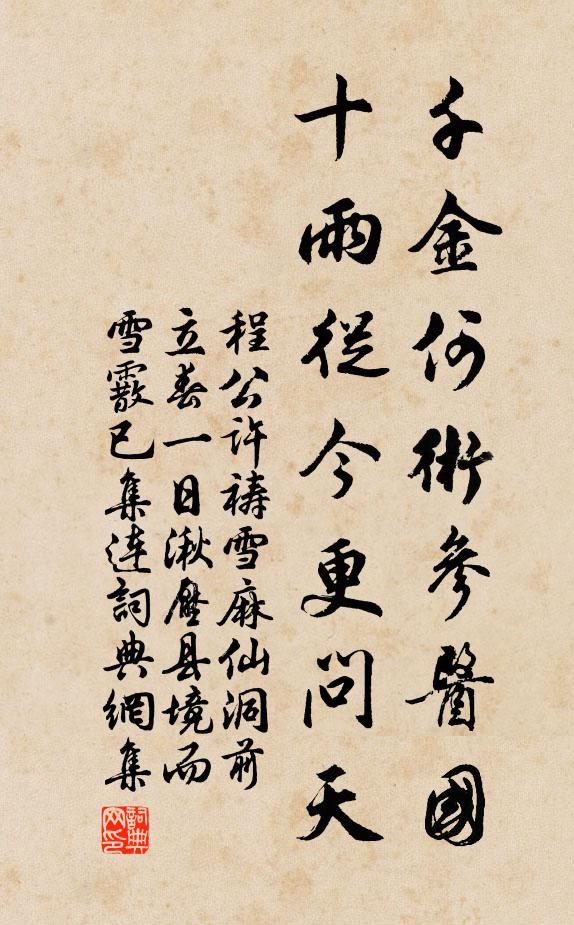 千金何術參醫國
十雨從今更問天
程公許禱雪麻仙洞前
立春一日湫壓县境而
雪霰已集連詞典網集
詞典網印